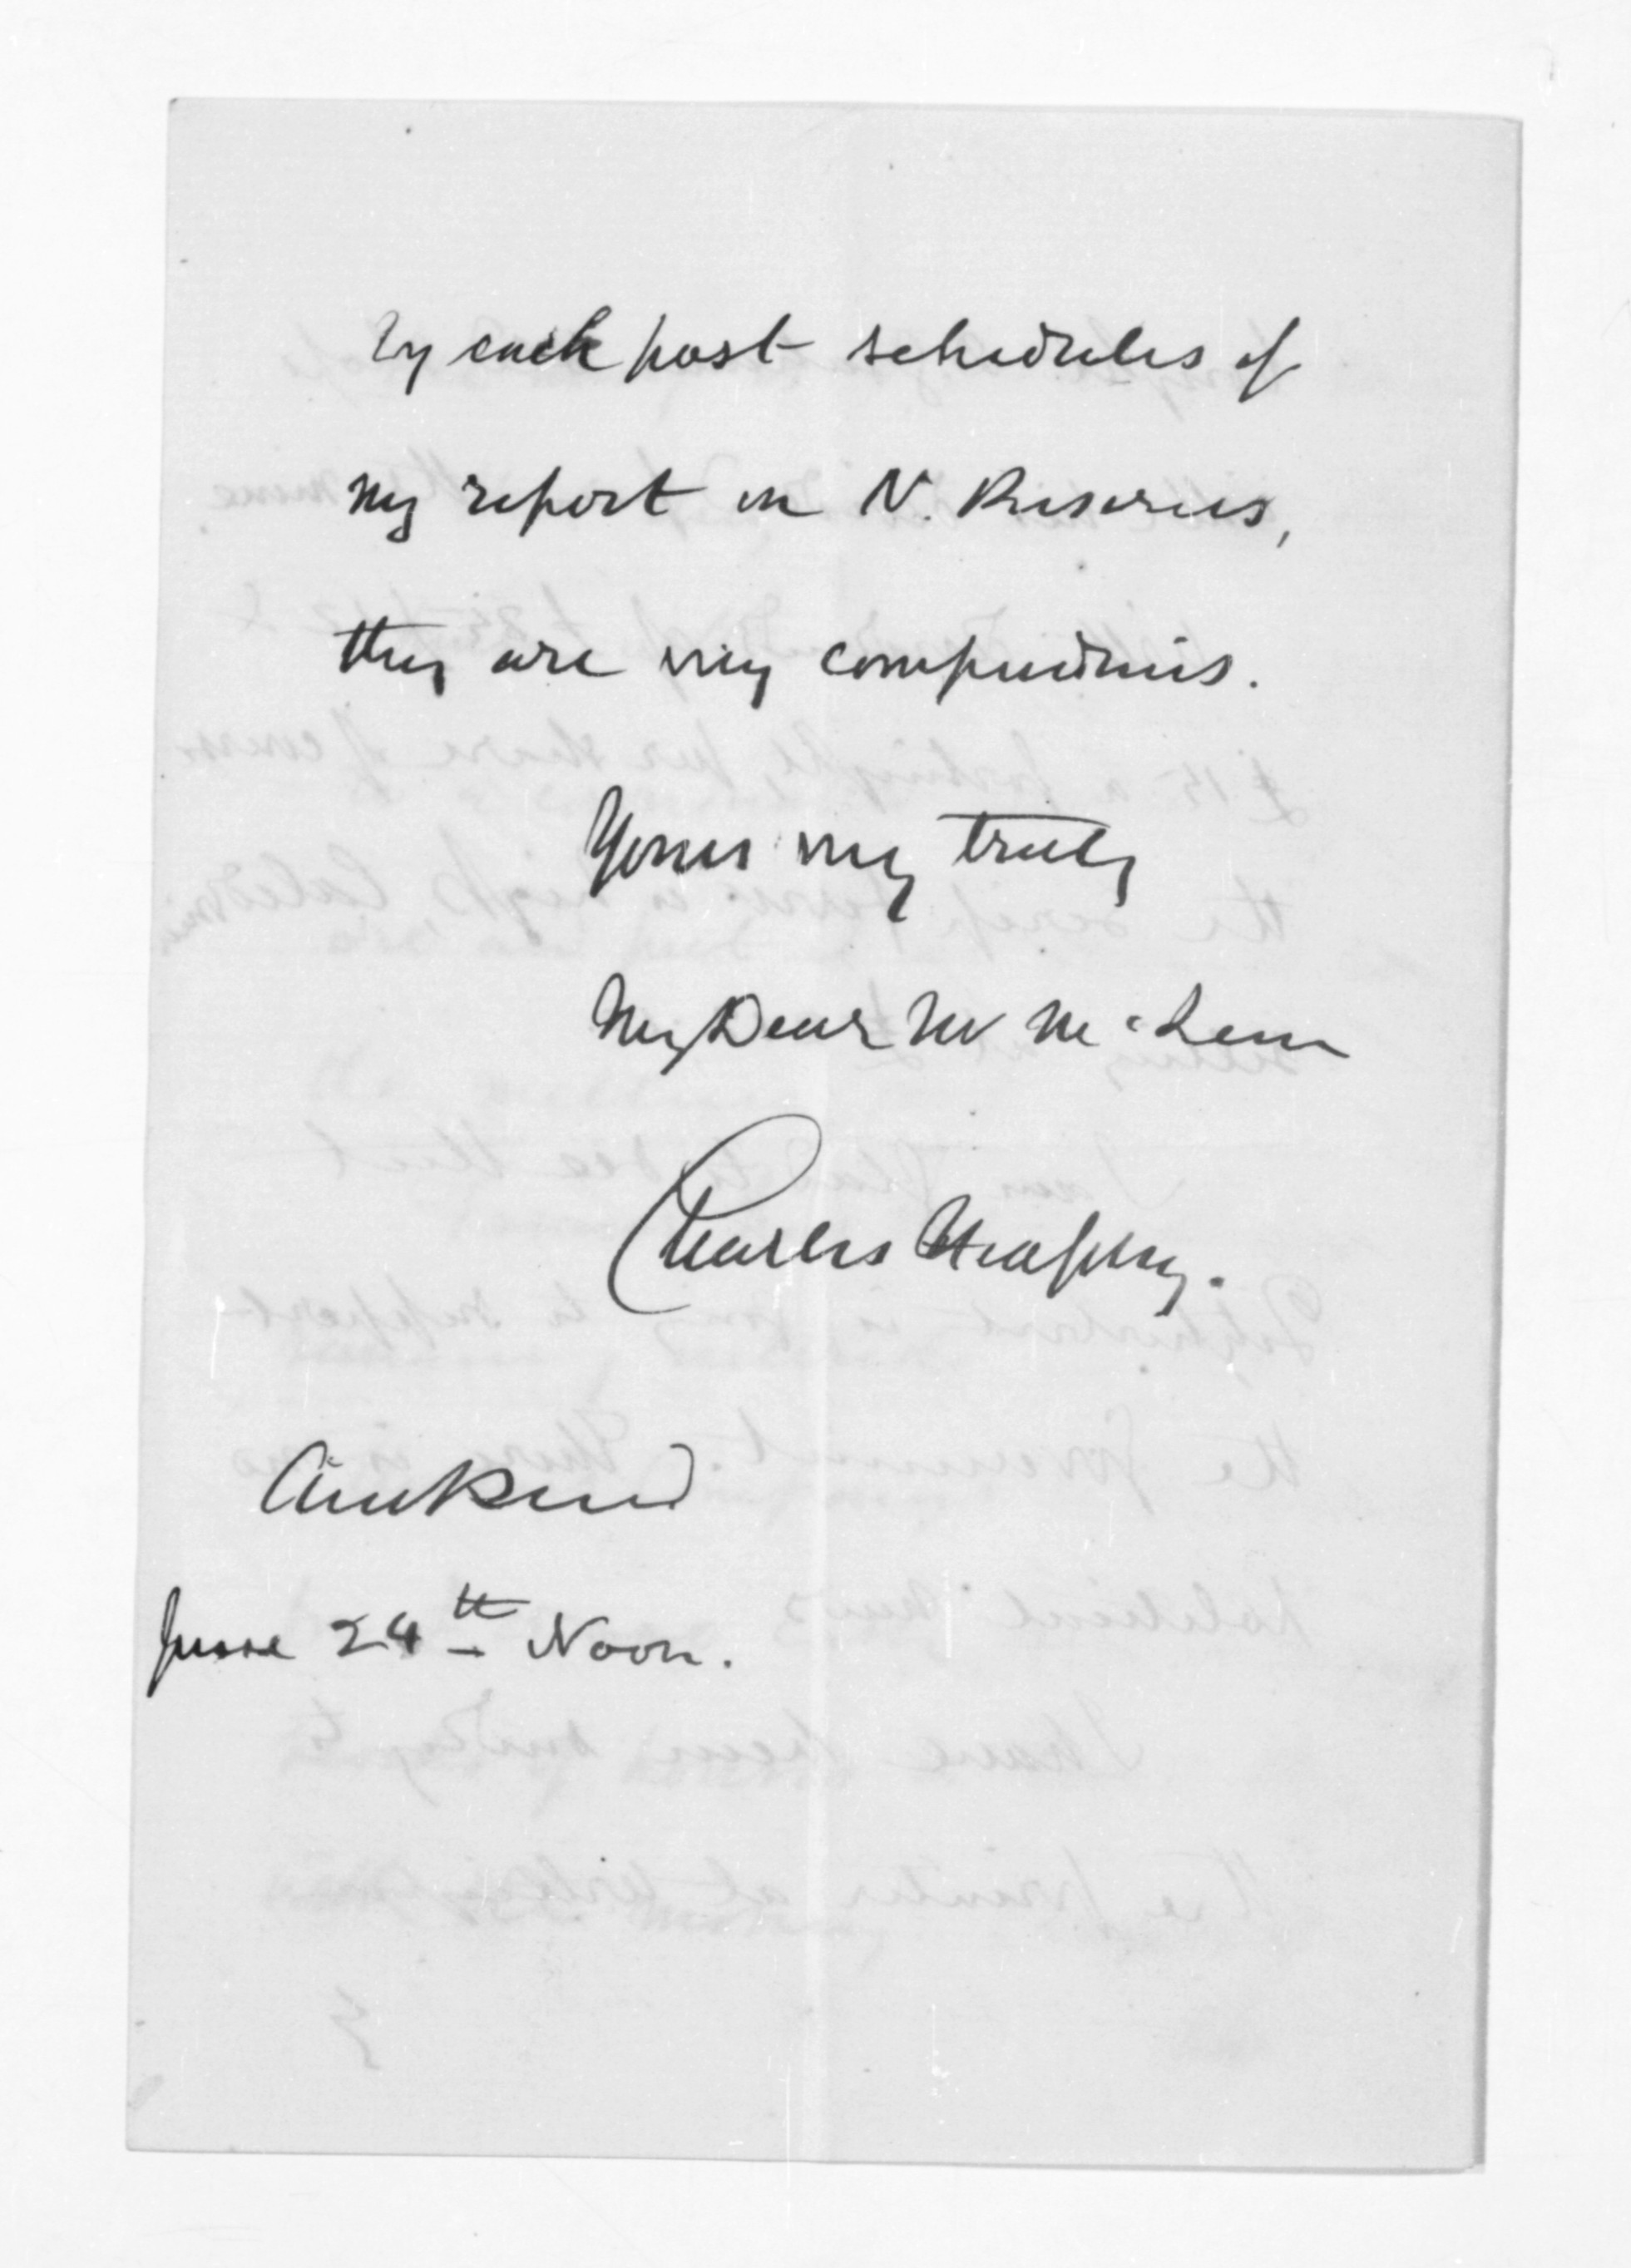 by each post schedules of
my report on N. Reserves,
they are very compendious.
Yours very truly
My Dear Mr McLean
Charles Heaphy.
Auckland
June 24th Noon.